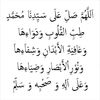 اللَّهُمَّ صَلِّ عَلَى سَيِّدِنَا مُحَمَّدٍ
طِبِّ الْقُلُوبِ وَدَوَاءِهَا
وَعَافِيَةِ الْأَبْدَانِ وَشِفَاءِهَا
وَنُورِ الْأَبْصَارِ وَضِيَاءِهَا
وَعَلَى آلِهِ وَصَحْبِهِ وَسَلِّمْ